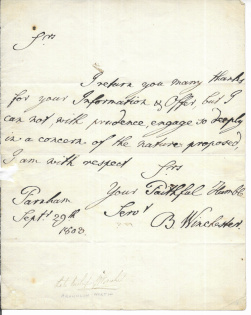 Sirs
I return you many thanks
for your Information & Offer, but I
can not with prudence engage so deeply
in a concern of the nature proposed
I am with respect Sirs
Your Faithful Humble
Servt
Farnham
Septr 29th
1808
B Winchester